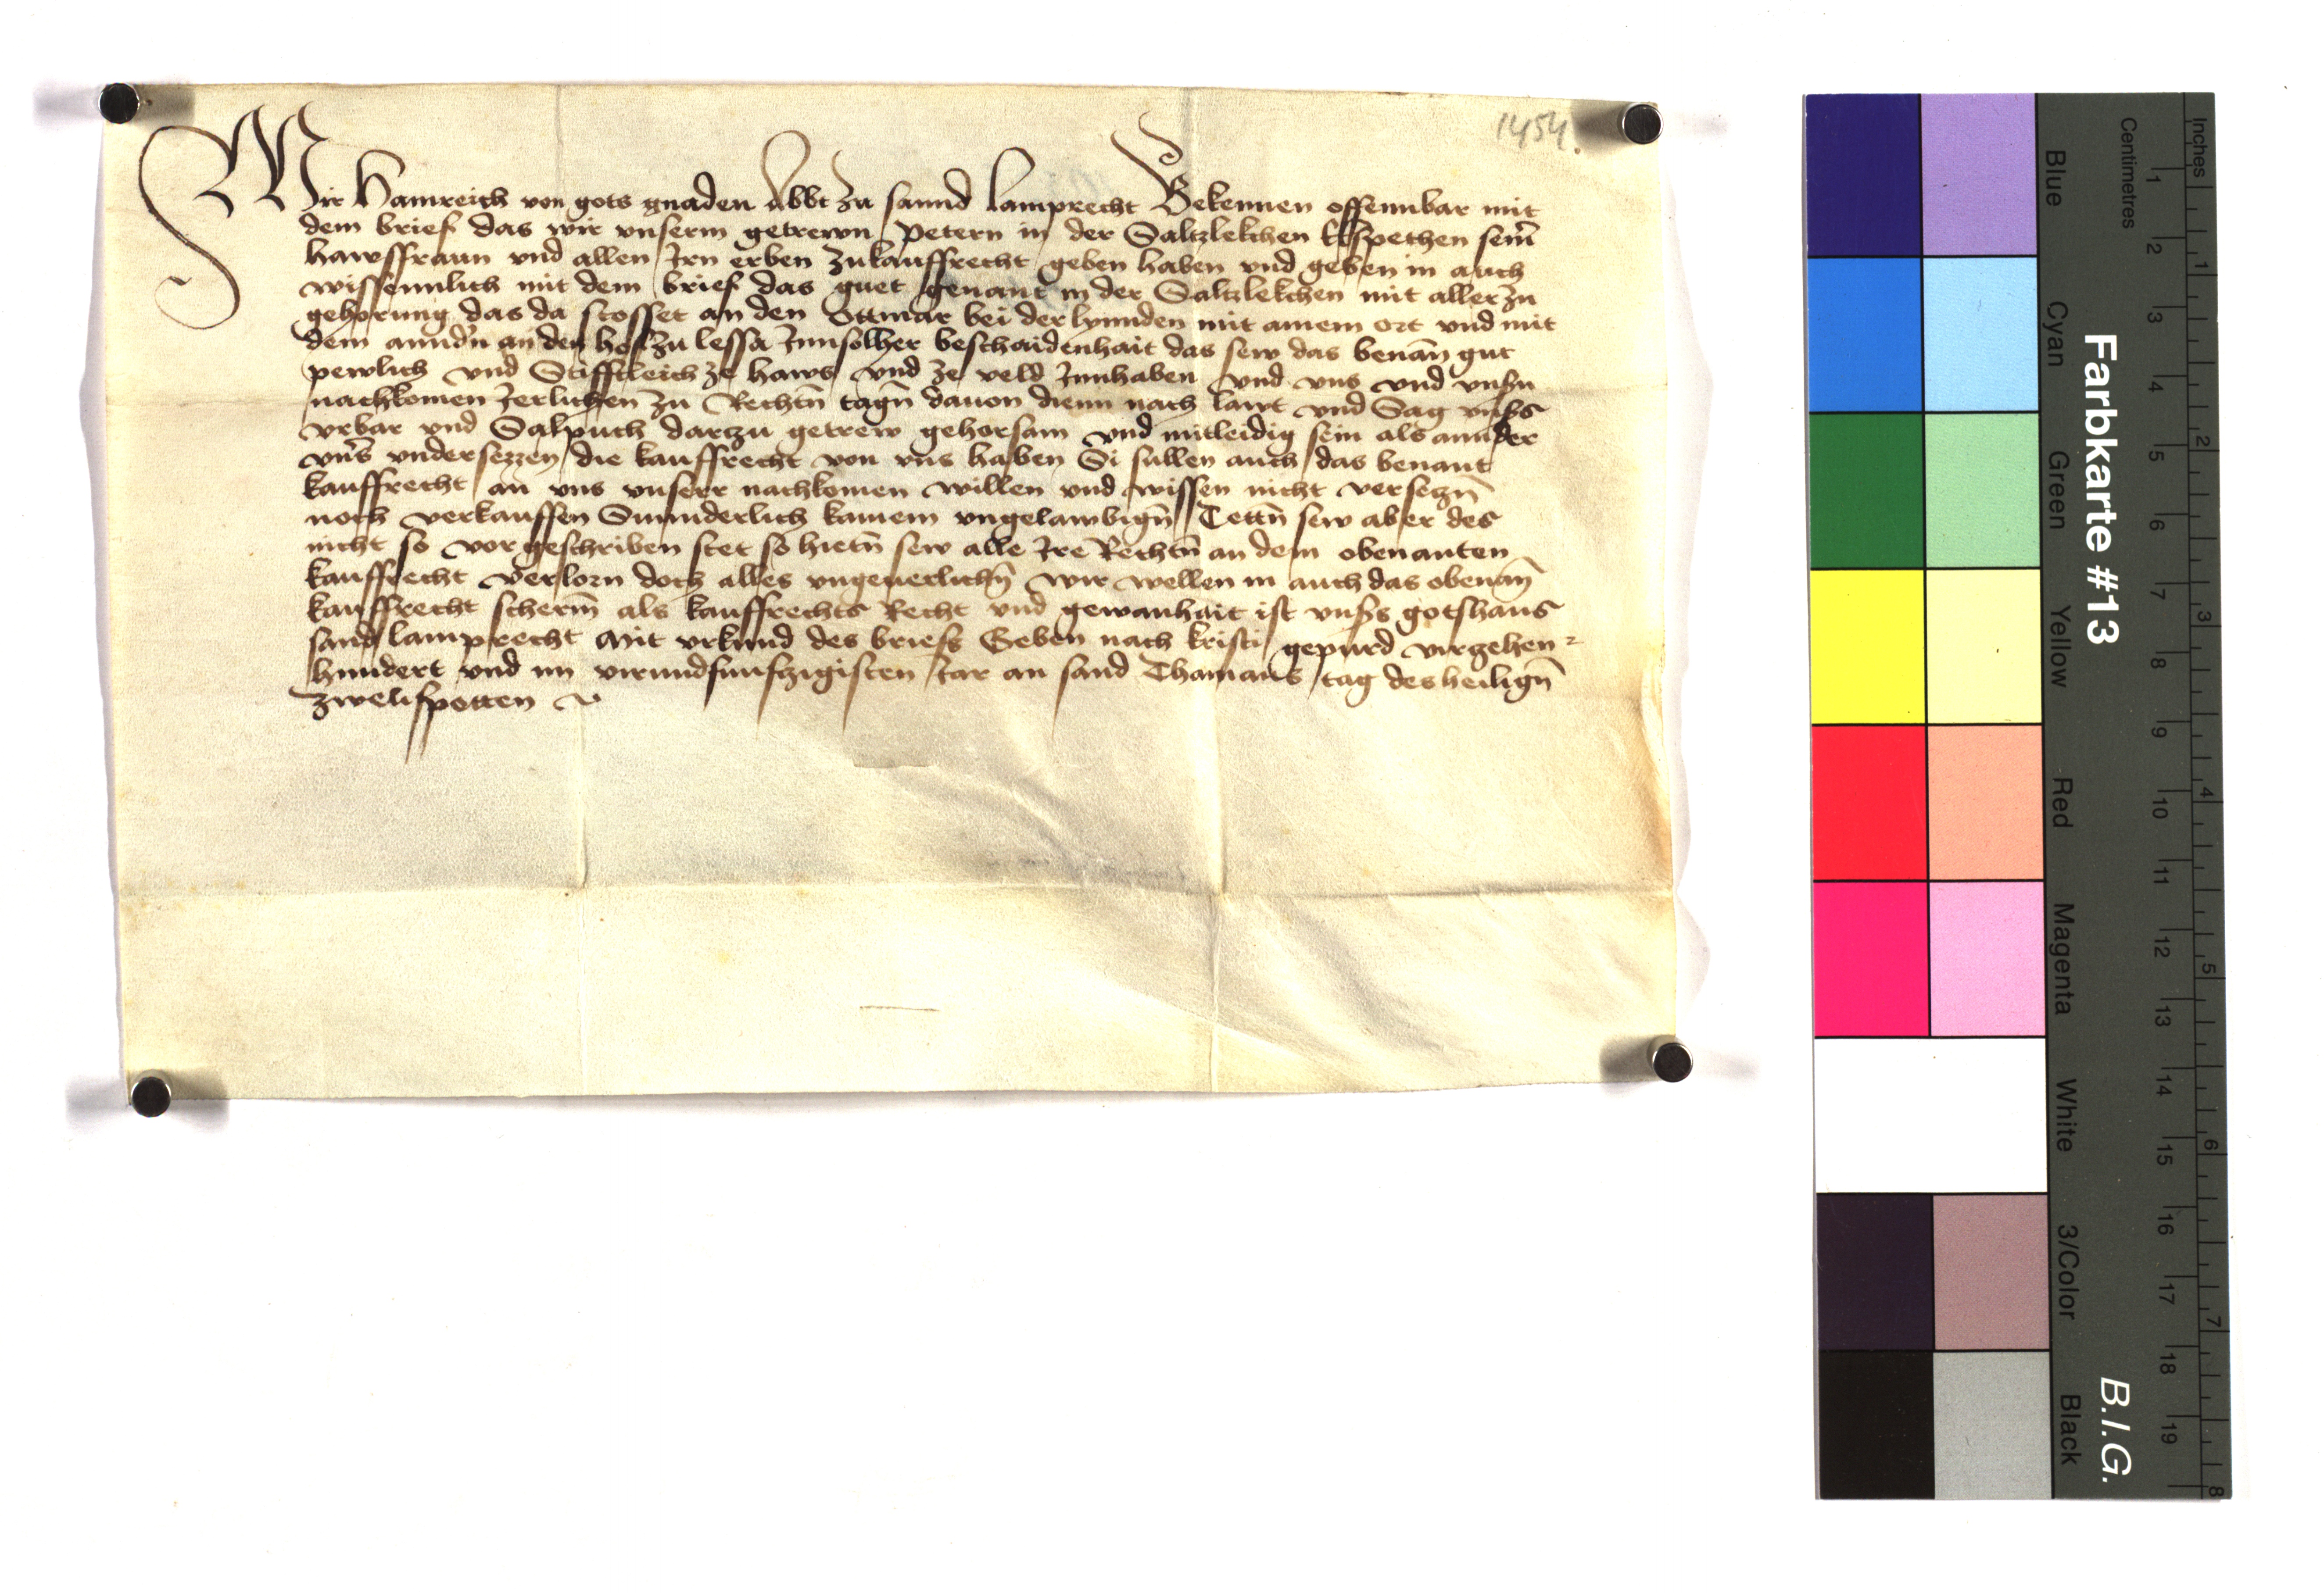 1454.
Wir Hainreich von gots gnaden Abbt zu sannd Lamprecht Bekennen offennbar mit
dem brief das wir vnserm getrewn Petern in der Saltzlekchen Elspethen seiner
hawsfraun vnd allen Irn erben zukauffrecht geben haben vnd geben in auch
wissennlich mit dem brief das guet genant in der Saltzlekchen mit aller zu
gehorung das da stosset an den Ottmar bei der lynnden mit ainem ort vnd mit
dem anndn an den hof zu lessa Innsolher beschaidenhait das sew das benan̄ gut
pewlich vnd Stifftleich ze haws vnd ze veld Innhaben vnd vns vnd vnsn
nachkomen Jerlichen zu Rechtn̄ tagn̄ dauon dienn nach lawt vnd Sag vnsers
vrbar vnd Salpuch darczu getrew gehorsam vnd mitleidig sein als annder
vns̄ vndersezzen die kauffrecht von vns haben Si sullen auch das benant
kauffrecht an vns vnserr nachkomen willen vnd wissen nicht verseczn̄
noch verkauffen Sunnderlich kainem vngelawbign̄ Tettn̄ sew aber des
nicht so vorgeschriben stet so hietn̄ sew alle Ire Rechtn̄ an dem obenanten
kauffrecht verlorn doch alles vngeuerlichn̄ wir wellen in auch das obenan̄
kauffrecht scherm̄ als kauffrechts Recht vnd gewanhait ist vnsers gotshaus
sand lamprecht Mit vrkund des briefs Geben nach kristi gepurd virzehen-
hundert vnd im virundfunfzigisten Jar an sand Thamans tag des heilign̄
zwelifpotten
Farbkarte #13
B.I.G.
Blue Cyan Green Yellow Red Magenta White 3/Color Black
Centimetres
1 2 3 4 5 6 7 8 9 10 11 12 13 14 15 16 17 18 19
Inches
1 2 3 4 5 6 7 8